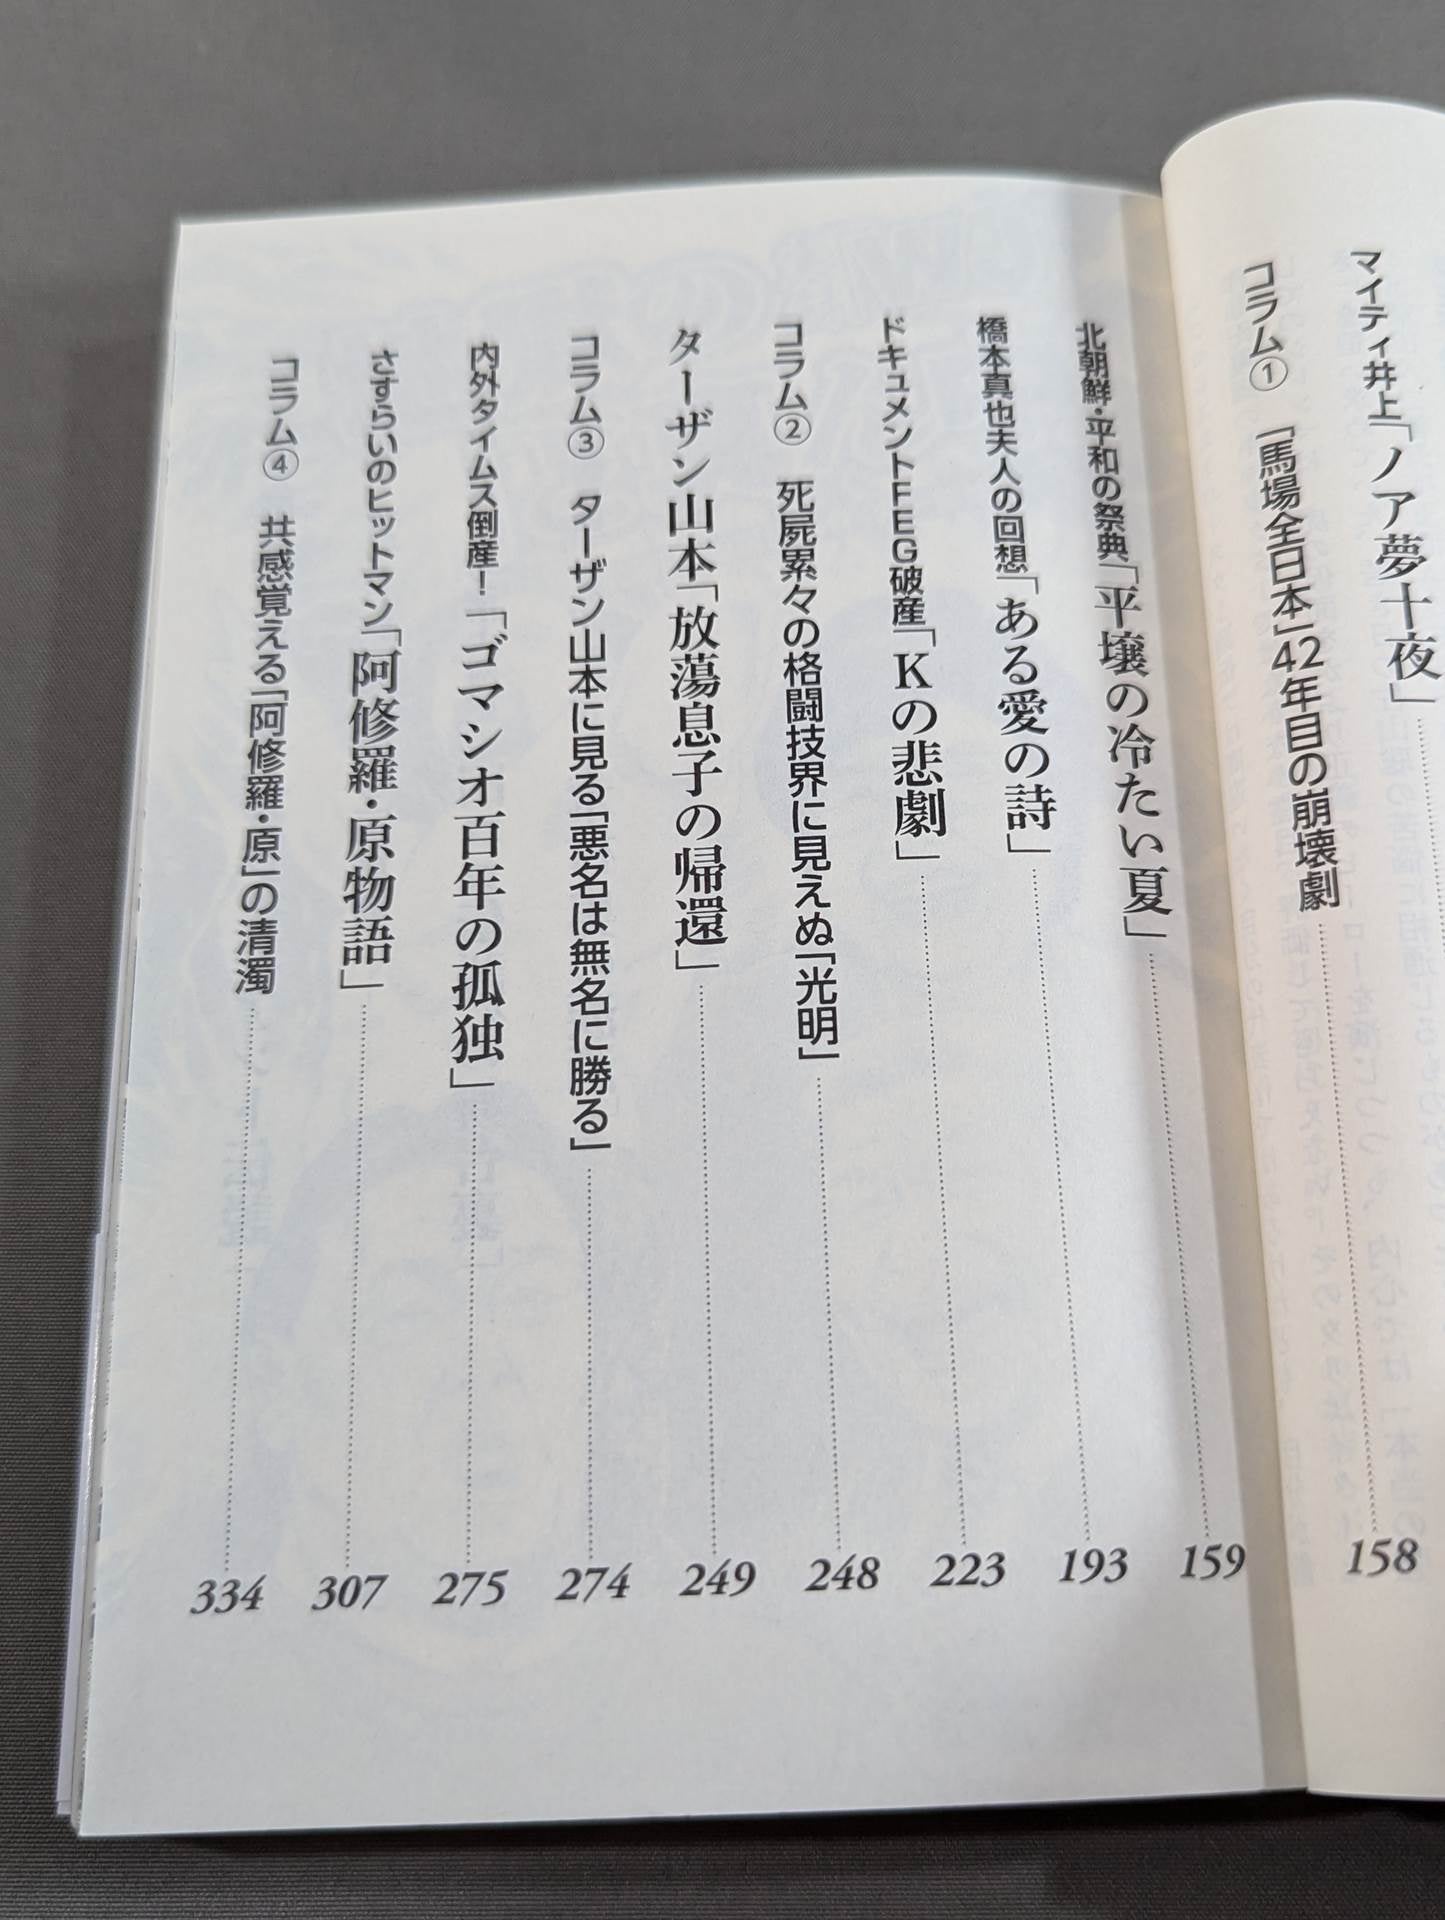 マイティ井上「ノア夢十夜」
コラム① 「馬場全日本」42年目の崩壊劇 158
北朝鮮・平和の祭典「平壌の冷たい夏」 159
橋本真也夫人の回想「ある愛の詩」 193
ドキュメントFEG破産「Kの悲劇」 223
コラム② 死屍累々の格闘技界に見えぬ「光明」 248
ターザン山本「放蕩息子の帰還」 249
コラム③ ターザン山本に見る「悪名は無名に勝る」 274
内外タイムス倒産!「ゴマシオ百年の孤独」 275
さすらいのヒットマン「阿修羅・原物語」 307
コラム④ 共感覚える「阿修羅・原」の清濁 334